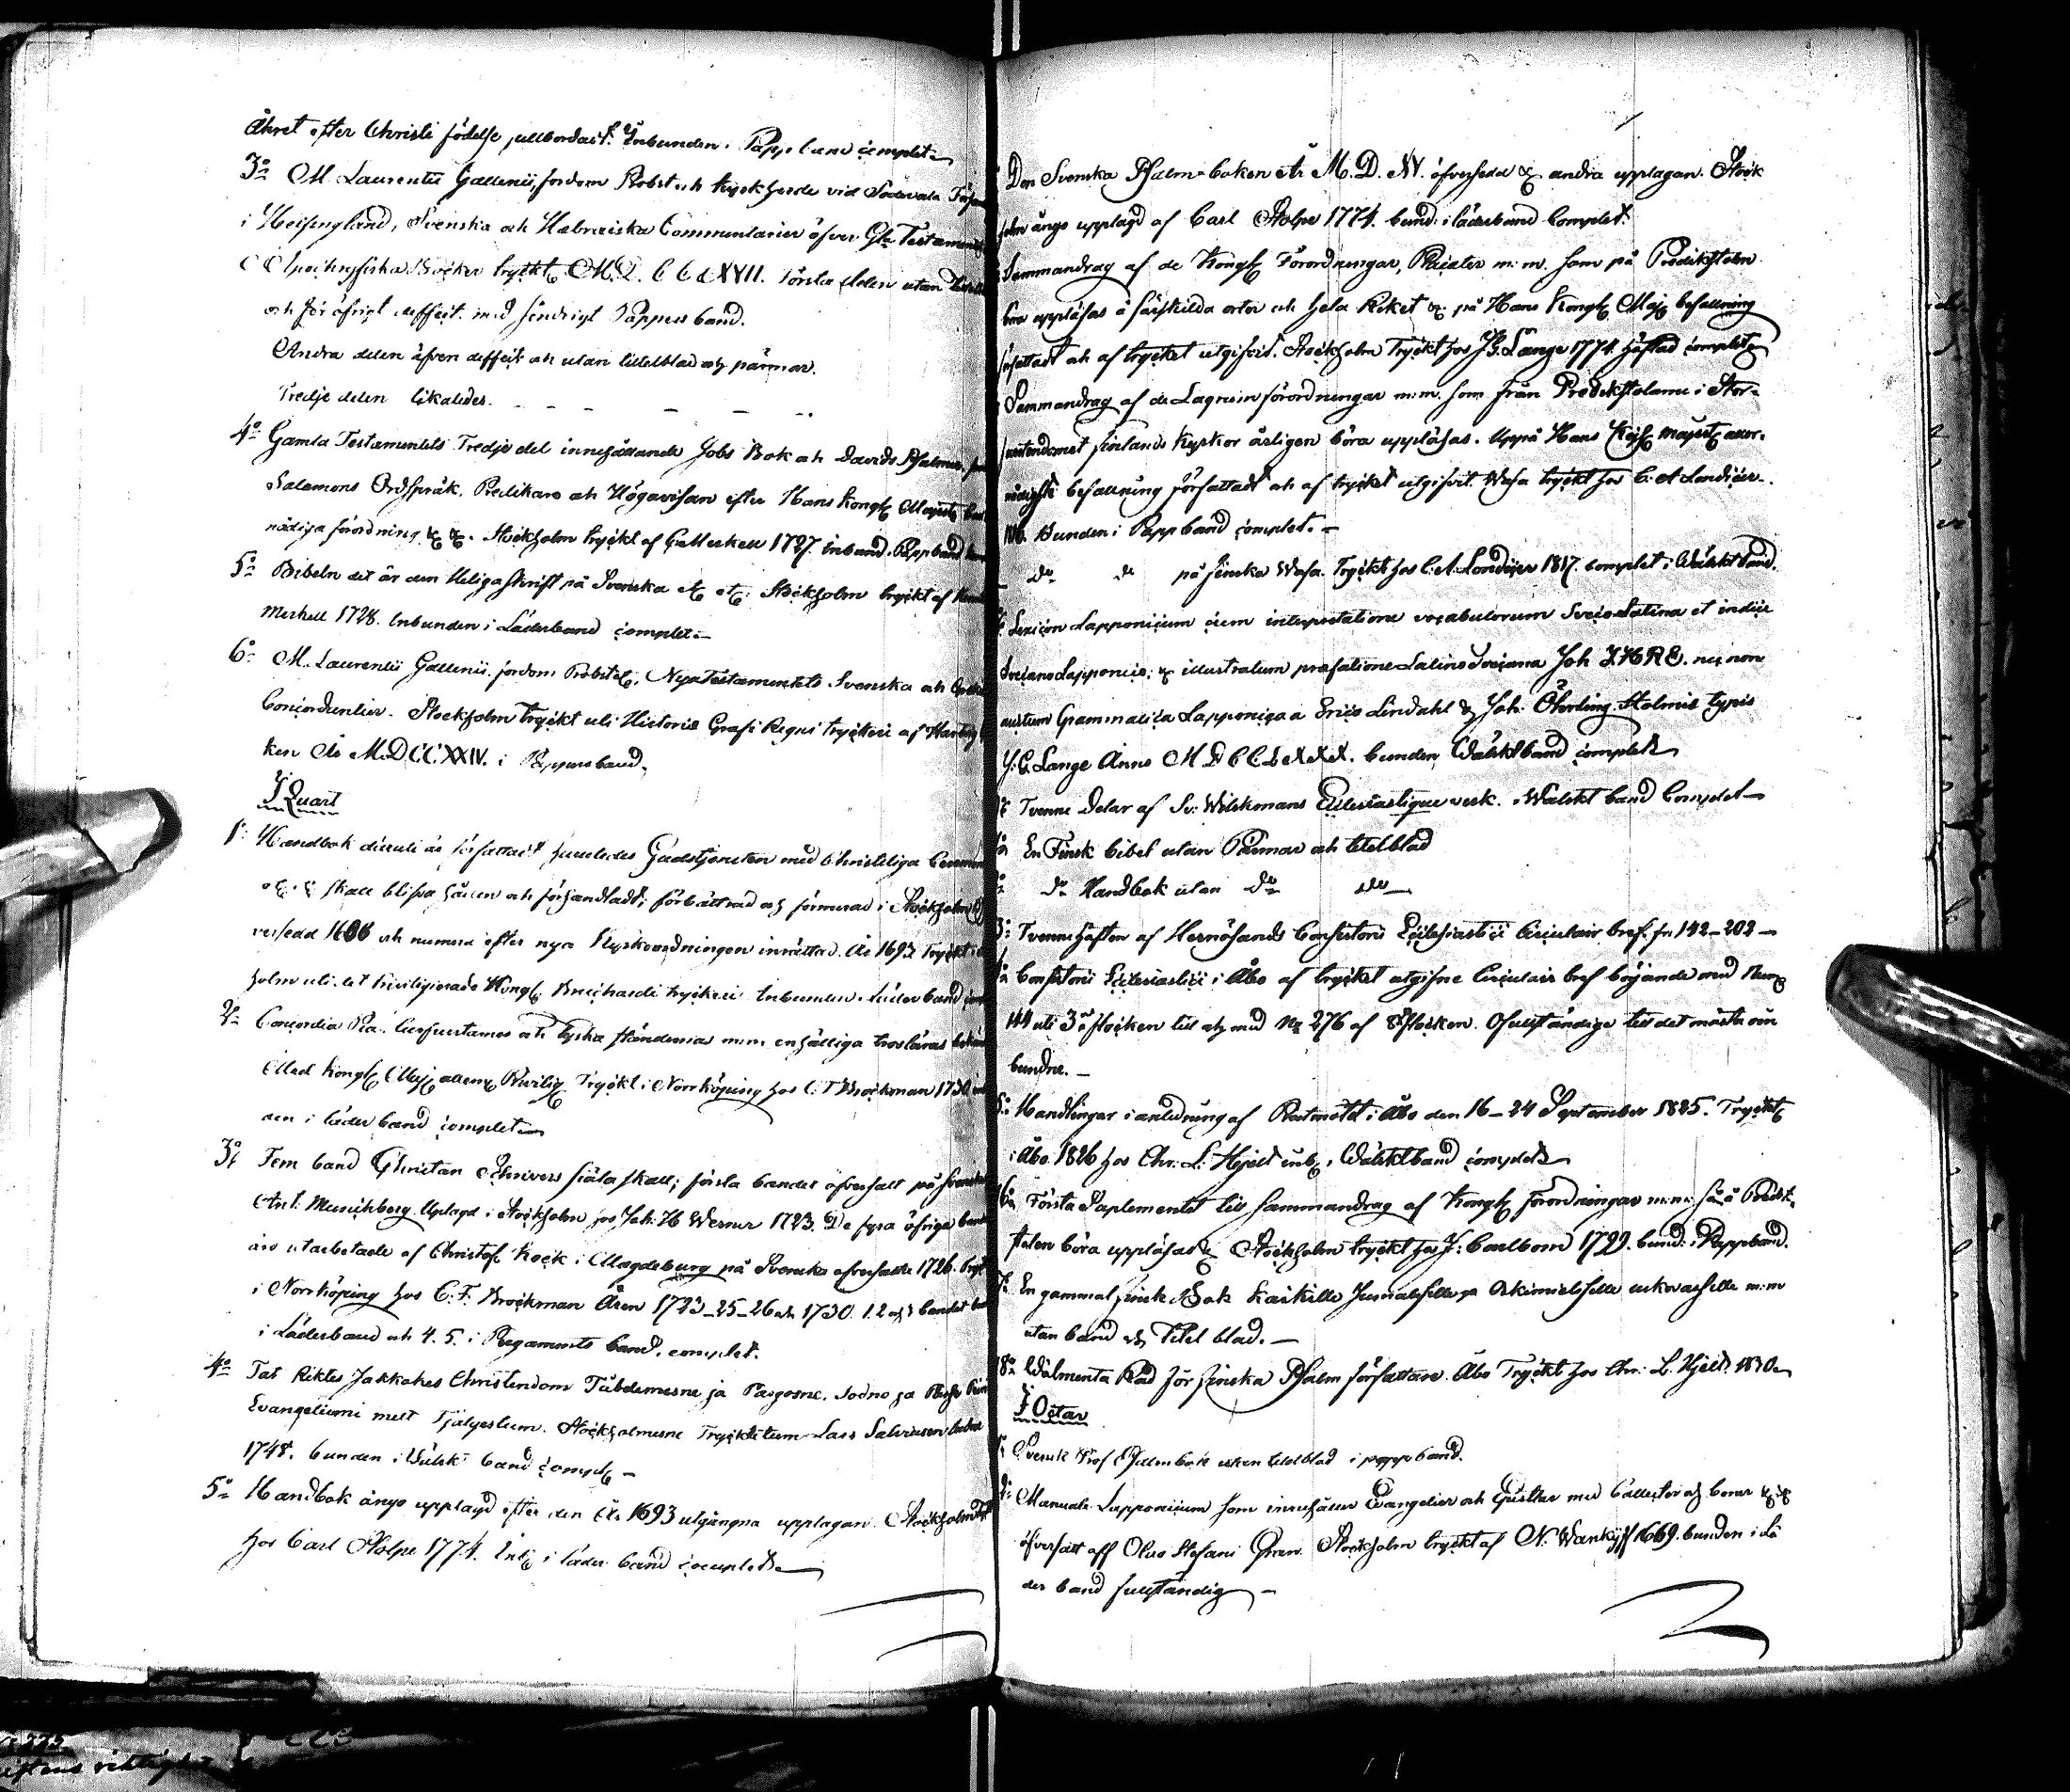 Åhret efter Christi födelse fullbordadt. Inbunden i Papp band complet
3o M. Laurentii Gallenii, fordom Probst och kyrkherde vid Söderala
i Helsingland, Svenska och Hebreiska Commentarier öfver Gla Testamentets
Apochryfiska Böcker tryckt M.D.CCXVII. Första delen utan
och för öfrigt deffect med söndrigt Pappers band.
Andra delen äfven deffect och utan titelblad och pärmar.
Tredje delen likaledes.
4o Gamla Testamentets Tredje del innehållande Jobs Bok och Davids Psalmer,
Salamons Ordspråk, Predikare och Högavisan efter Hans Kongl Majests
nådiga förordning &c &c. Stockholm tryckt af 1727. inbund. Pappband
5o Bibeln det är den Heliga skrift på Svenska etc etc. Stockholm tryckt af
Merkell 1728. Inbunden i Läderband complet
6o M. Laurentii Gallenii fordom Probst &c, Nya Testamentets Svenska och
Concordantier. Stockholm tryckt uti Historie Graf Regni tryckeri af
ken År M.DCCXXXIV. i Pappersband.
I Quart
1o Handbok deruti är författadt huruledes Gudstjensten med Christeliga
&c &c skall blifva hållen och förhandlad; förbättrad och förmerad i Stockholm
versedd 1608 och numera efter nya Kyrkoordningen inrättad År 1693 Tryckt i
holm uti det Privilegierade Kongl. Burchardi tryckeri Inbunden i Läder band
2o Concordia Pia. Curfurstarnes och Tyska Ständernas m.m. enhälliga trosläras
Med Kongl Maj allern Privilig Tryckt i Norrköping hos C. F. Brockman 1730
den i läder band complet
3o Fem band Christian Schrivers själa skatt; första bandet öfversatt på
Ant. Munchberg. Uplagd i Stockholm hos Joh. H. Werner 1723. De fyra öfriga
äro utarbetade af Christof Kock i Magdeburg på Svenska öfversatte 1726.
i Norrköping hos C. F. Brockman Åren 1723-25-26 och 1730. 1. 2 och 3 bandet
i Läderband och 4. 5. i Pergaments band, complet.
4o Tat Riktes Jakkakes Christendom Tubdemesne ja Pargosne. Sodno ja
Evangeliumi melt Tjälgestum. Stockholmesne Trycktetum Lars Salviusen
1748. bunden i Wälsk band compl
5o Handbok ånyo upplagd efter den År 1693 utgångna upplagan. Stockholm
hos Carl Stolpe 1774. Inb i läder band complet
Den Svenska Psalm-boken År M.D.XV. öfversedd & andra upplagan. Stock
holm ånyo upplagd af Carl Stolpe 1774. bund. i läderband complet.
Sammandrag af de Kongl Förordningar, Placater m:m. som på Predikstolen
bör uppläsas å särskilda orter och hela Riket &. på Hans Kongl Maj befallning
författadt och af trycket utgifvit. Stockholm Tryckt hos J.G. Lange 1774. häftad complet
Sammandrag af de Lagrum förordningar m:m. som från Predikstolarne i Stor-
furstendömet finlands kyrkor årligen böra uppläsas. Uppå Hans Kejs Majest aller-
nådigste befallning författadt och af trycket utgifvit. Wasa tryckt hos C. A. Londicer.
Bunden i Pappband complet.
do do på finska Wasa. Tryckt hos C.A. Londicer 1817. complet i Wälsktband.
Lexicon Lapponicum cum interpretatione vocabulorum Sveco Latina et indice
Svecano Lapponico; & illustratum præfatione Latino Svecana Joh IHRE. nec non
auctum Grammatica Lapponica a Erico Lindahl & Joh. Öhrling Holmiæ typis
J.G. Lange Anno MDCCLXXX. bunden Wälsktband complet
Tvenne Delar af Sv: Wilskmans Ecclesiastique verk. Wälskt band Complet
En Finsk bibel utan Pärmar och titelblad
do Handbok utan do do
3o Tvenne häften af Hernösands Consistorii Ecclesiastici Circulair bref. fr. 142-202
Consistorii Ecclesiastici i Åbo af trycket utgifne Circulair bref börjande med Num
144 uti 3o flocken till och med No 276 af 8o flocken. Ofullständige till det mästa oin
bundne.
5o Handlingar i anledning af Prestmötet i Åbo den 16-24 September 1825. Tryckt
i Åbo 1826 hos Chr. L. Hjelt inb. Wälsktband complet
6o Första Suplementet till Sammandrag af Kongl förordningar m:m: så å Predik-
stolen böra uppläsas & Stockholm tryckt hos J. Carlbom 1799. bund. i Pappband.
7o En gammal finsk Bok Kaikille Jumalisille ja m:m
utan band och Titel blad.
8o Wälmenta Råd för finska Psalm författare. Åbo Tryckt hos Chr. L. Hjelt. 1830
I Octav
Svensk Prof Psalmbok utan titelblad i pappband.
2o Manuale Lapponicum som innehåller Evangelier och Epistlar med Collecter och böner &c &c
öfversatt aff Olao Stefani Graan. Stockholm tryckt af N. Wankijff 1669. bunden i Lä
der band fullständig